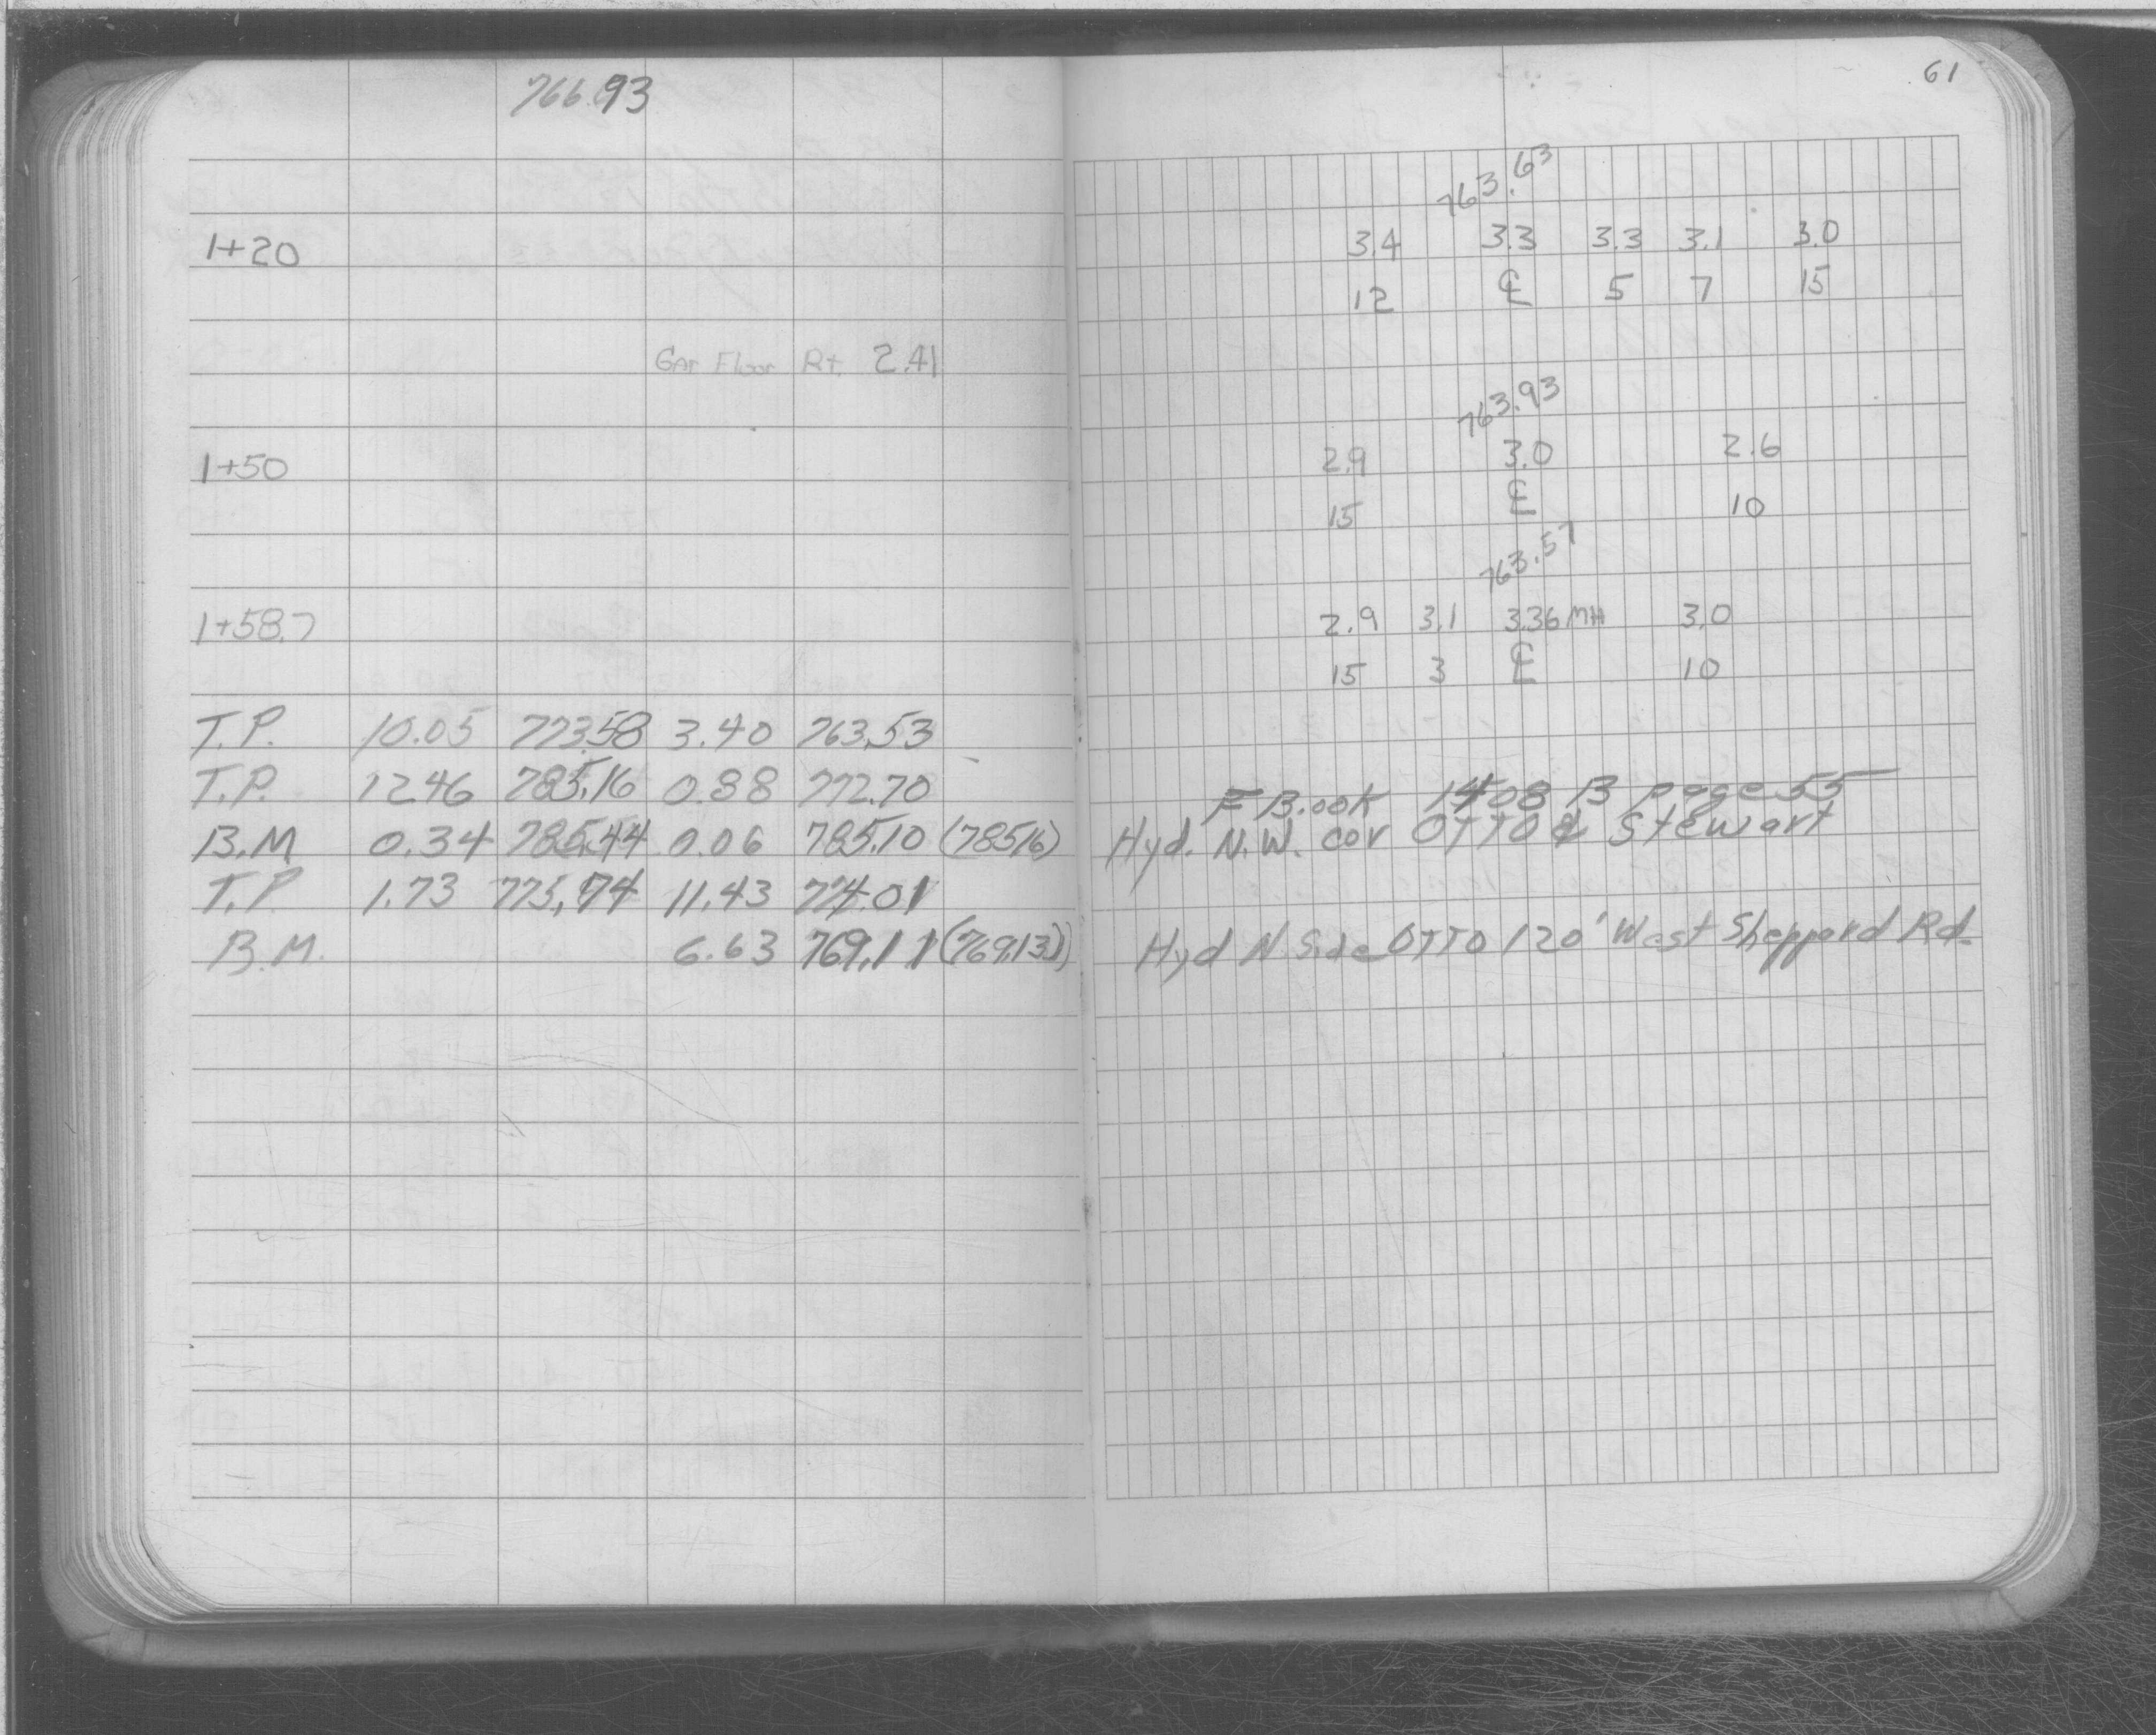 766.93
61
763.63
1+20 3.4 3.3 3.3 3.1 3.0
12 ℄ 5 7 15
Gar Floor Rt. 2.41
763.93
1+50 2.9 3.0 2.6
15 ℄ 10
763.57
1+58.7 2.9 3.1 3.36 MH 3.0
15 3 ℄ 10
T.P. 10.05 773.58 3.40 763.53
T.P. 12.46 785.16 0.88 772.70
F Book 1408 B page 55
B.M 0.34 785.44 0.06 785.10 (785.16) Hyd. N.W. cor OTTO & Stewart
T.P 1.73 775.74 11.43 774.01
B.M. 6.63 769.11 (769.13) Hyd N. Side OTTO 120' West Sheppard Rd.